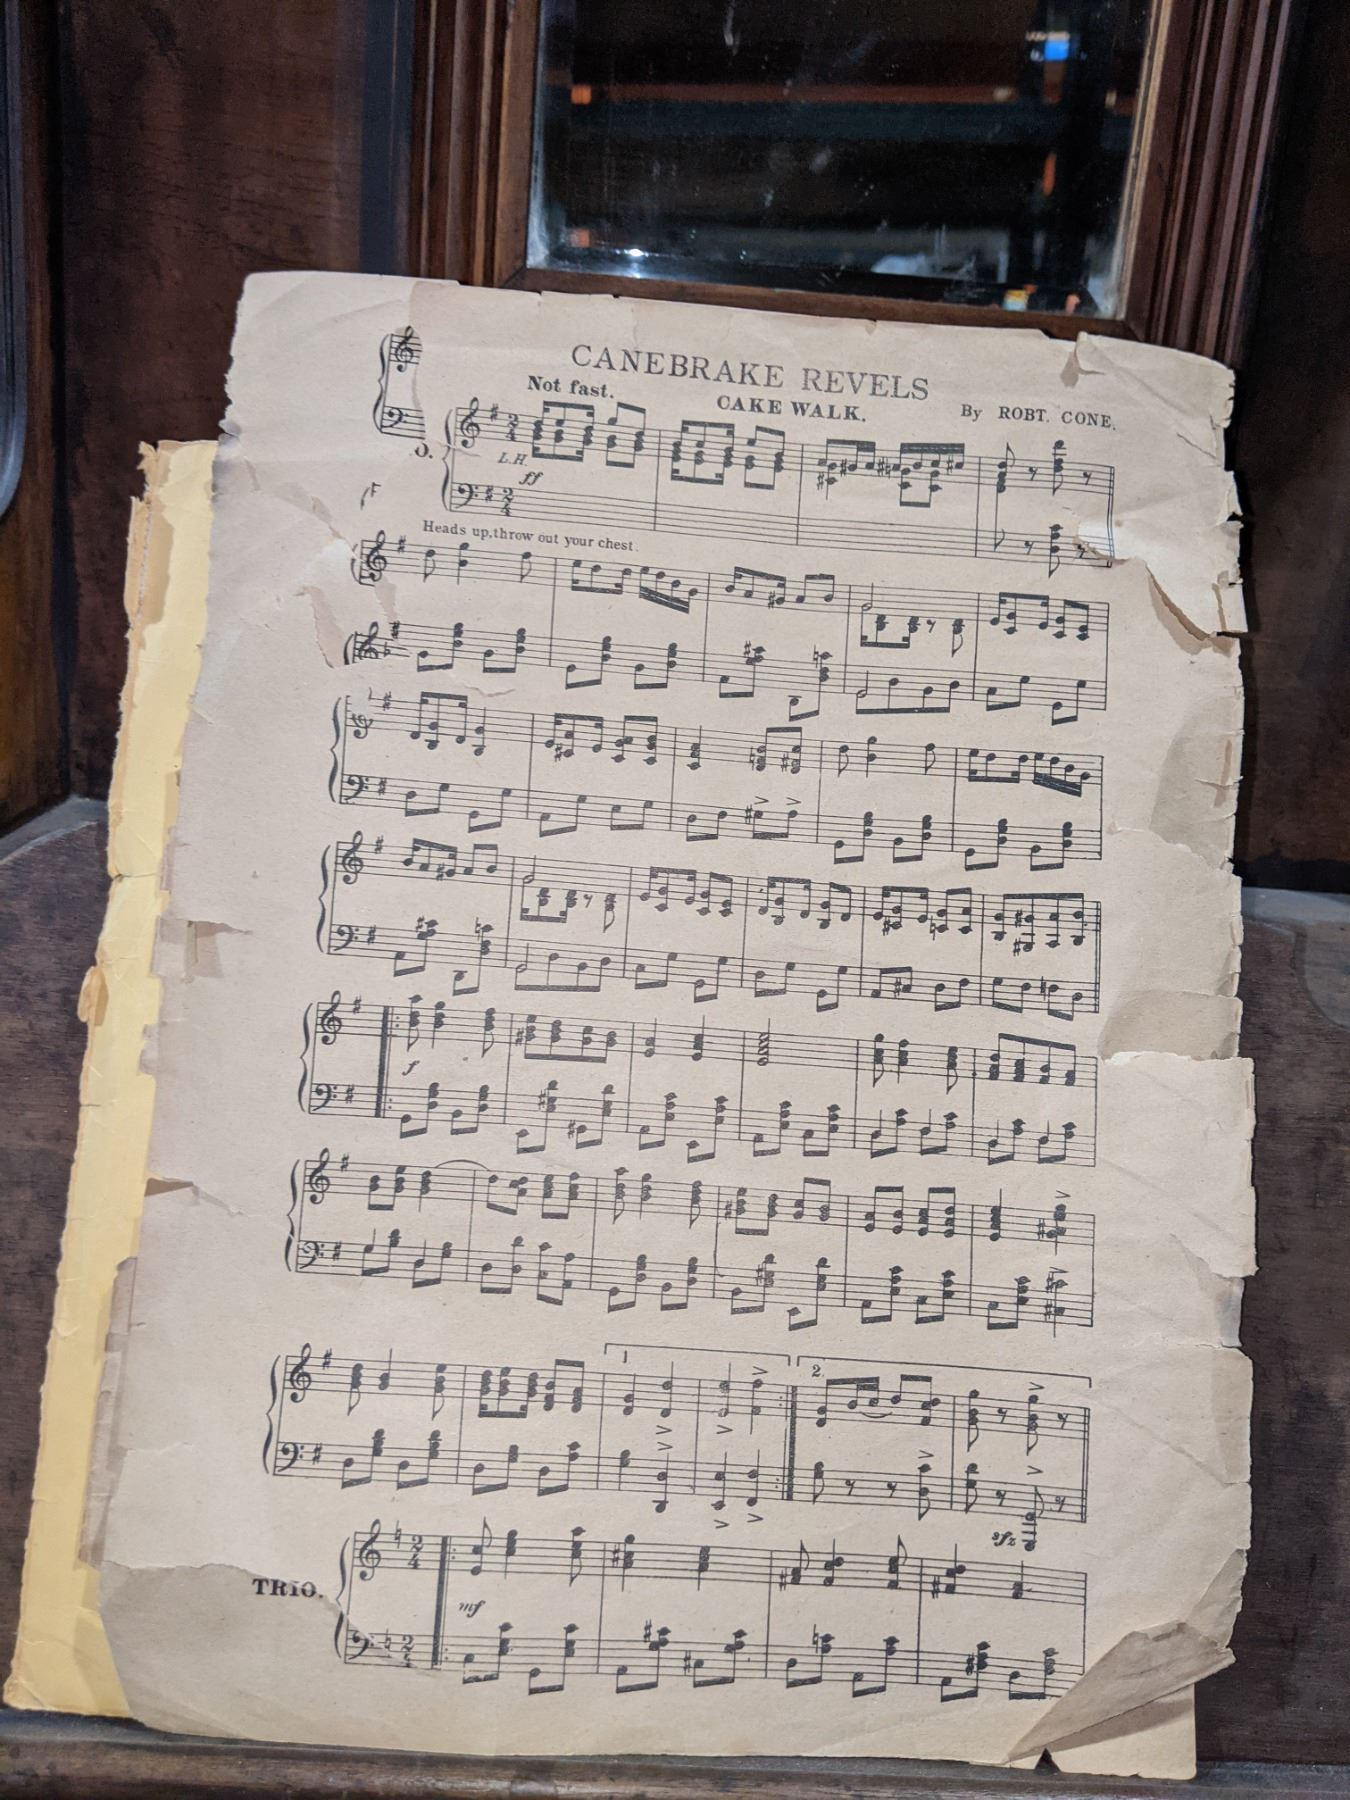 CANEBRAKE REVELS
Not fast.
CAKE WALK.
By ROBT. CONE.
L.H.
ff
Heads up, throw out your chest.
f
1
2.
sfz
TRIO.
mf